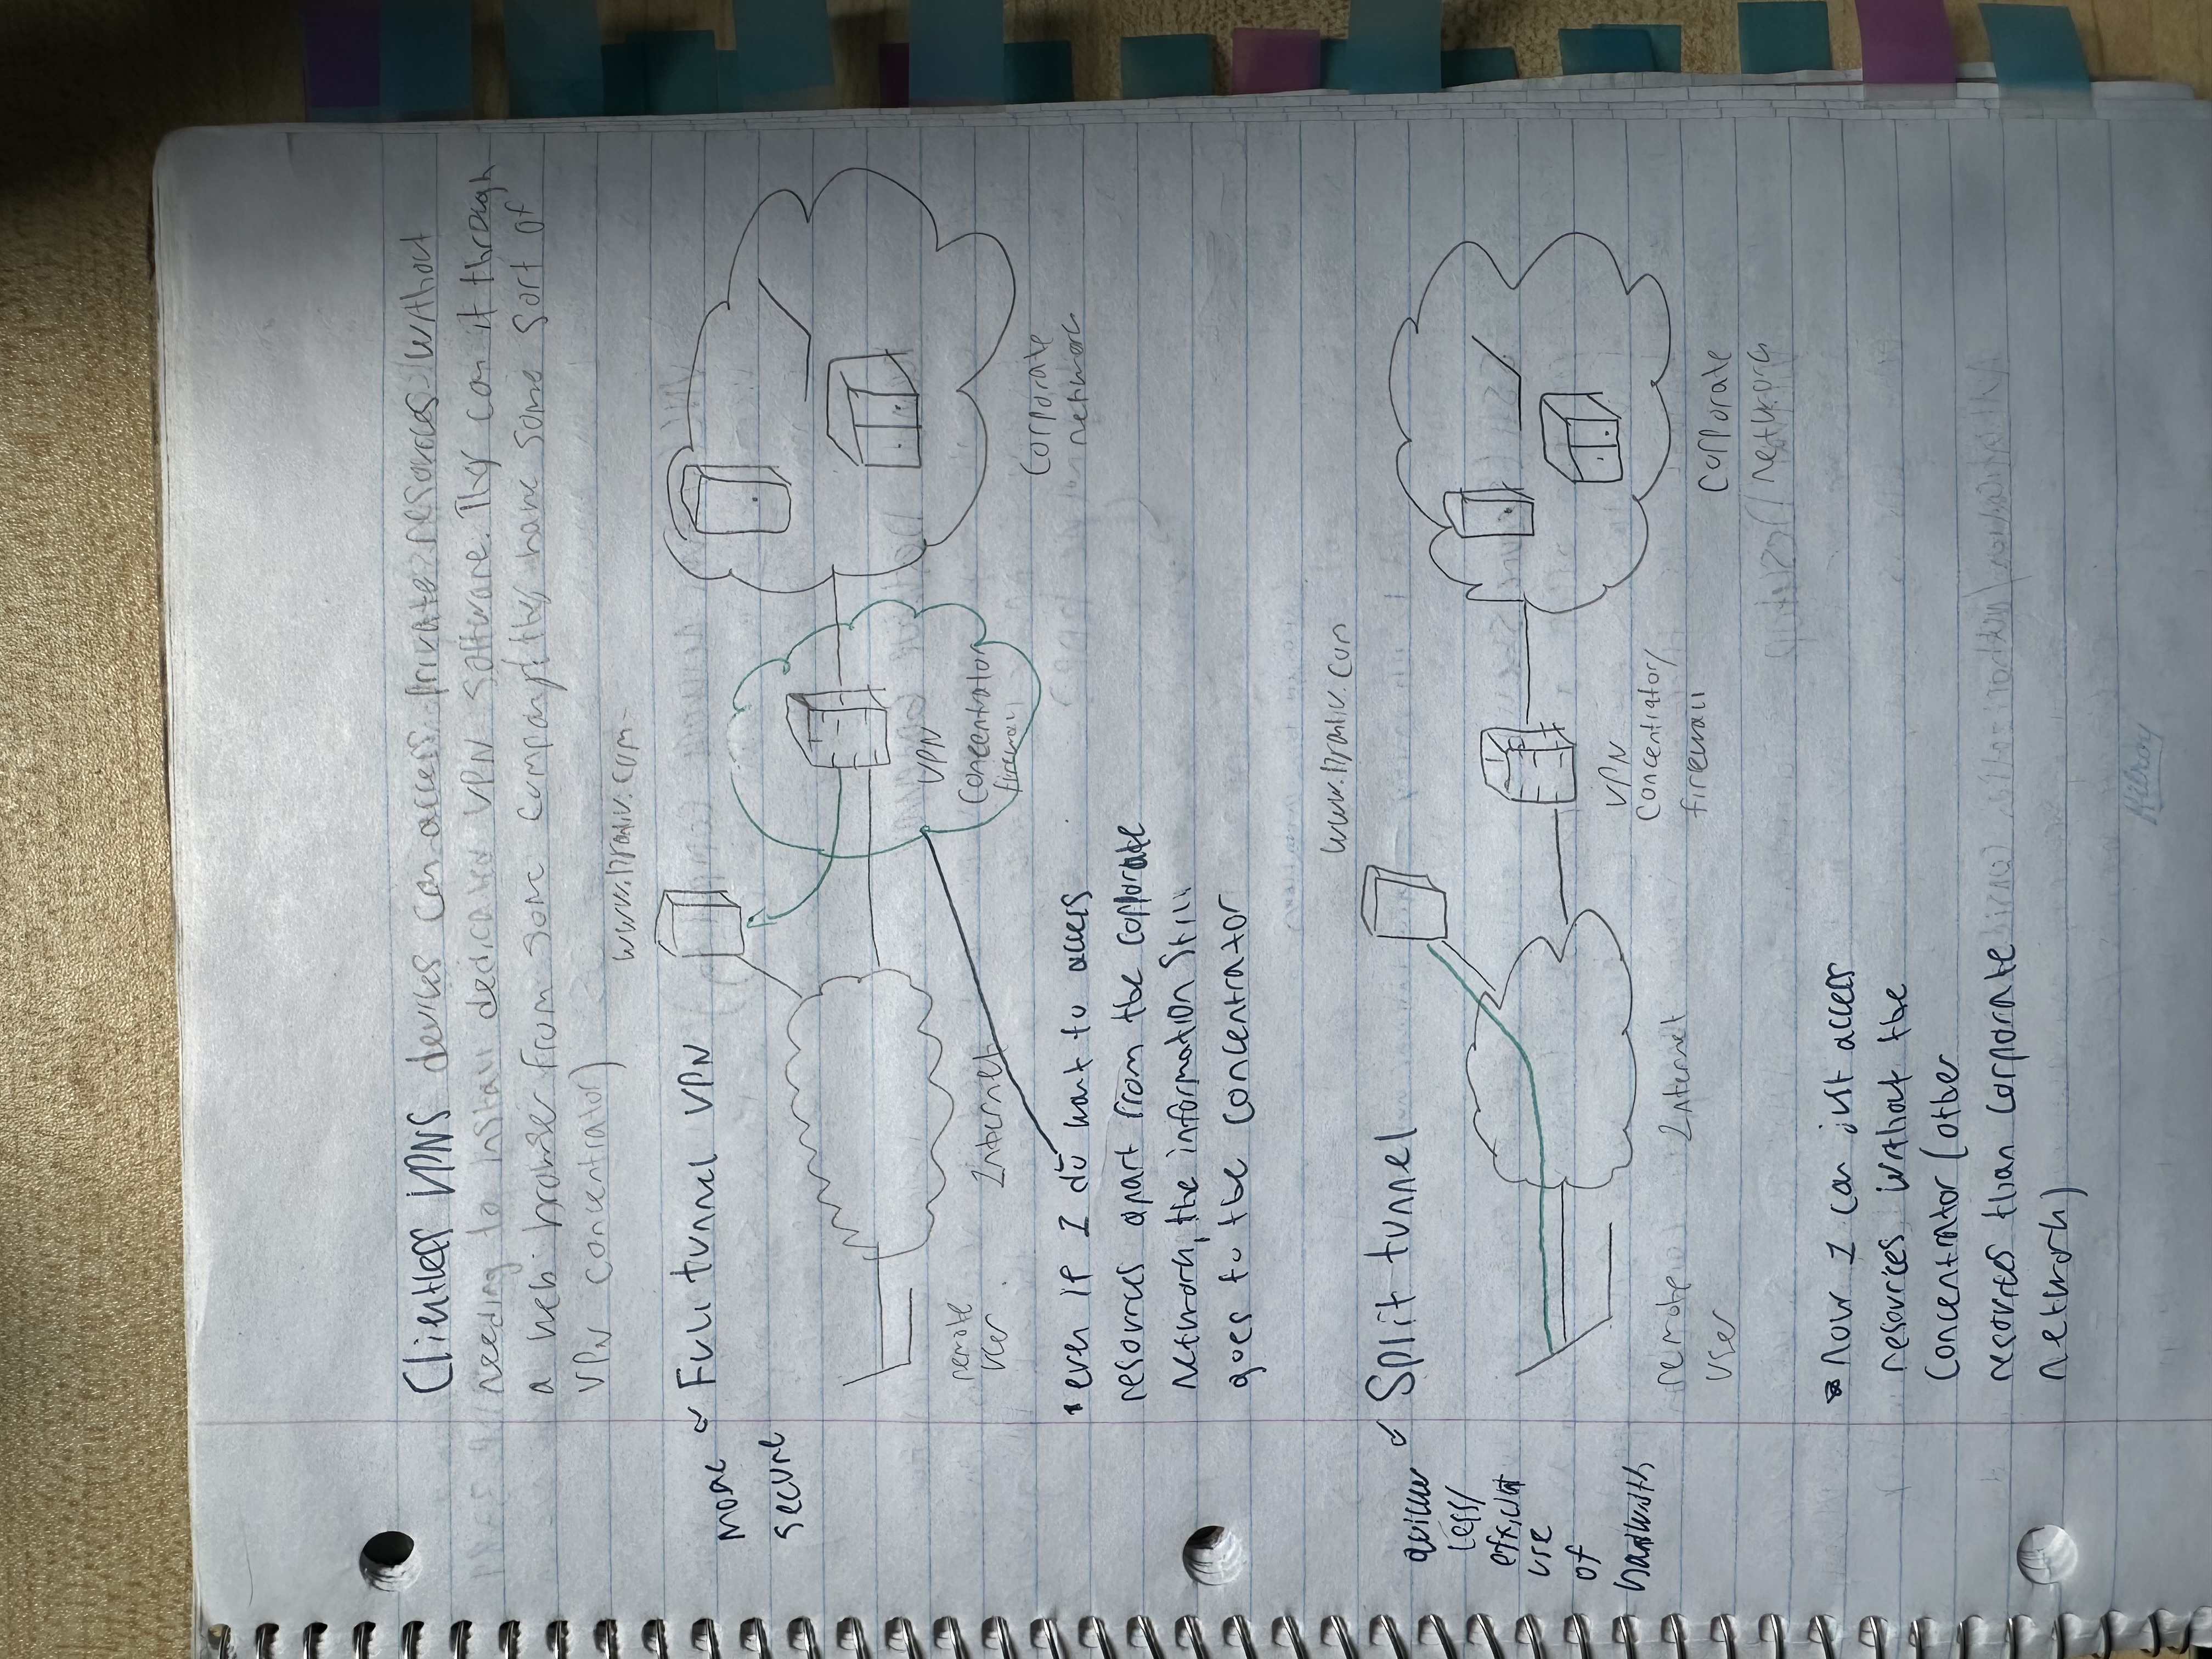 Clientless VPNS devices can access private resources without
needing to install dedicated VPN software. They can it through
a web browser from some company (they have some sort of
VPN concentrator)
Full tunnel VPN
more
secure
remote
user
Internet
VPN
Concentrator
firewall
Corporate
network
• even if I do want to access
resources apart from the corporate
network, the information still
goes to the concentrator
Split tunnel
quicker
less/
efficient
use
of
bandwidth
remote
user
Internet
VPN
Concentrator/
firewall
Corporate
network
Now I can just access
resources without the
Concentrator (other
resources than corporate
network)
Hilroy